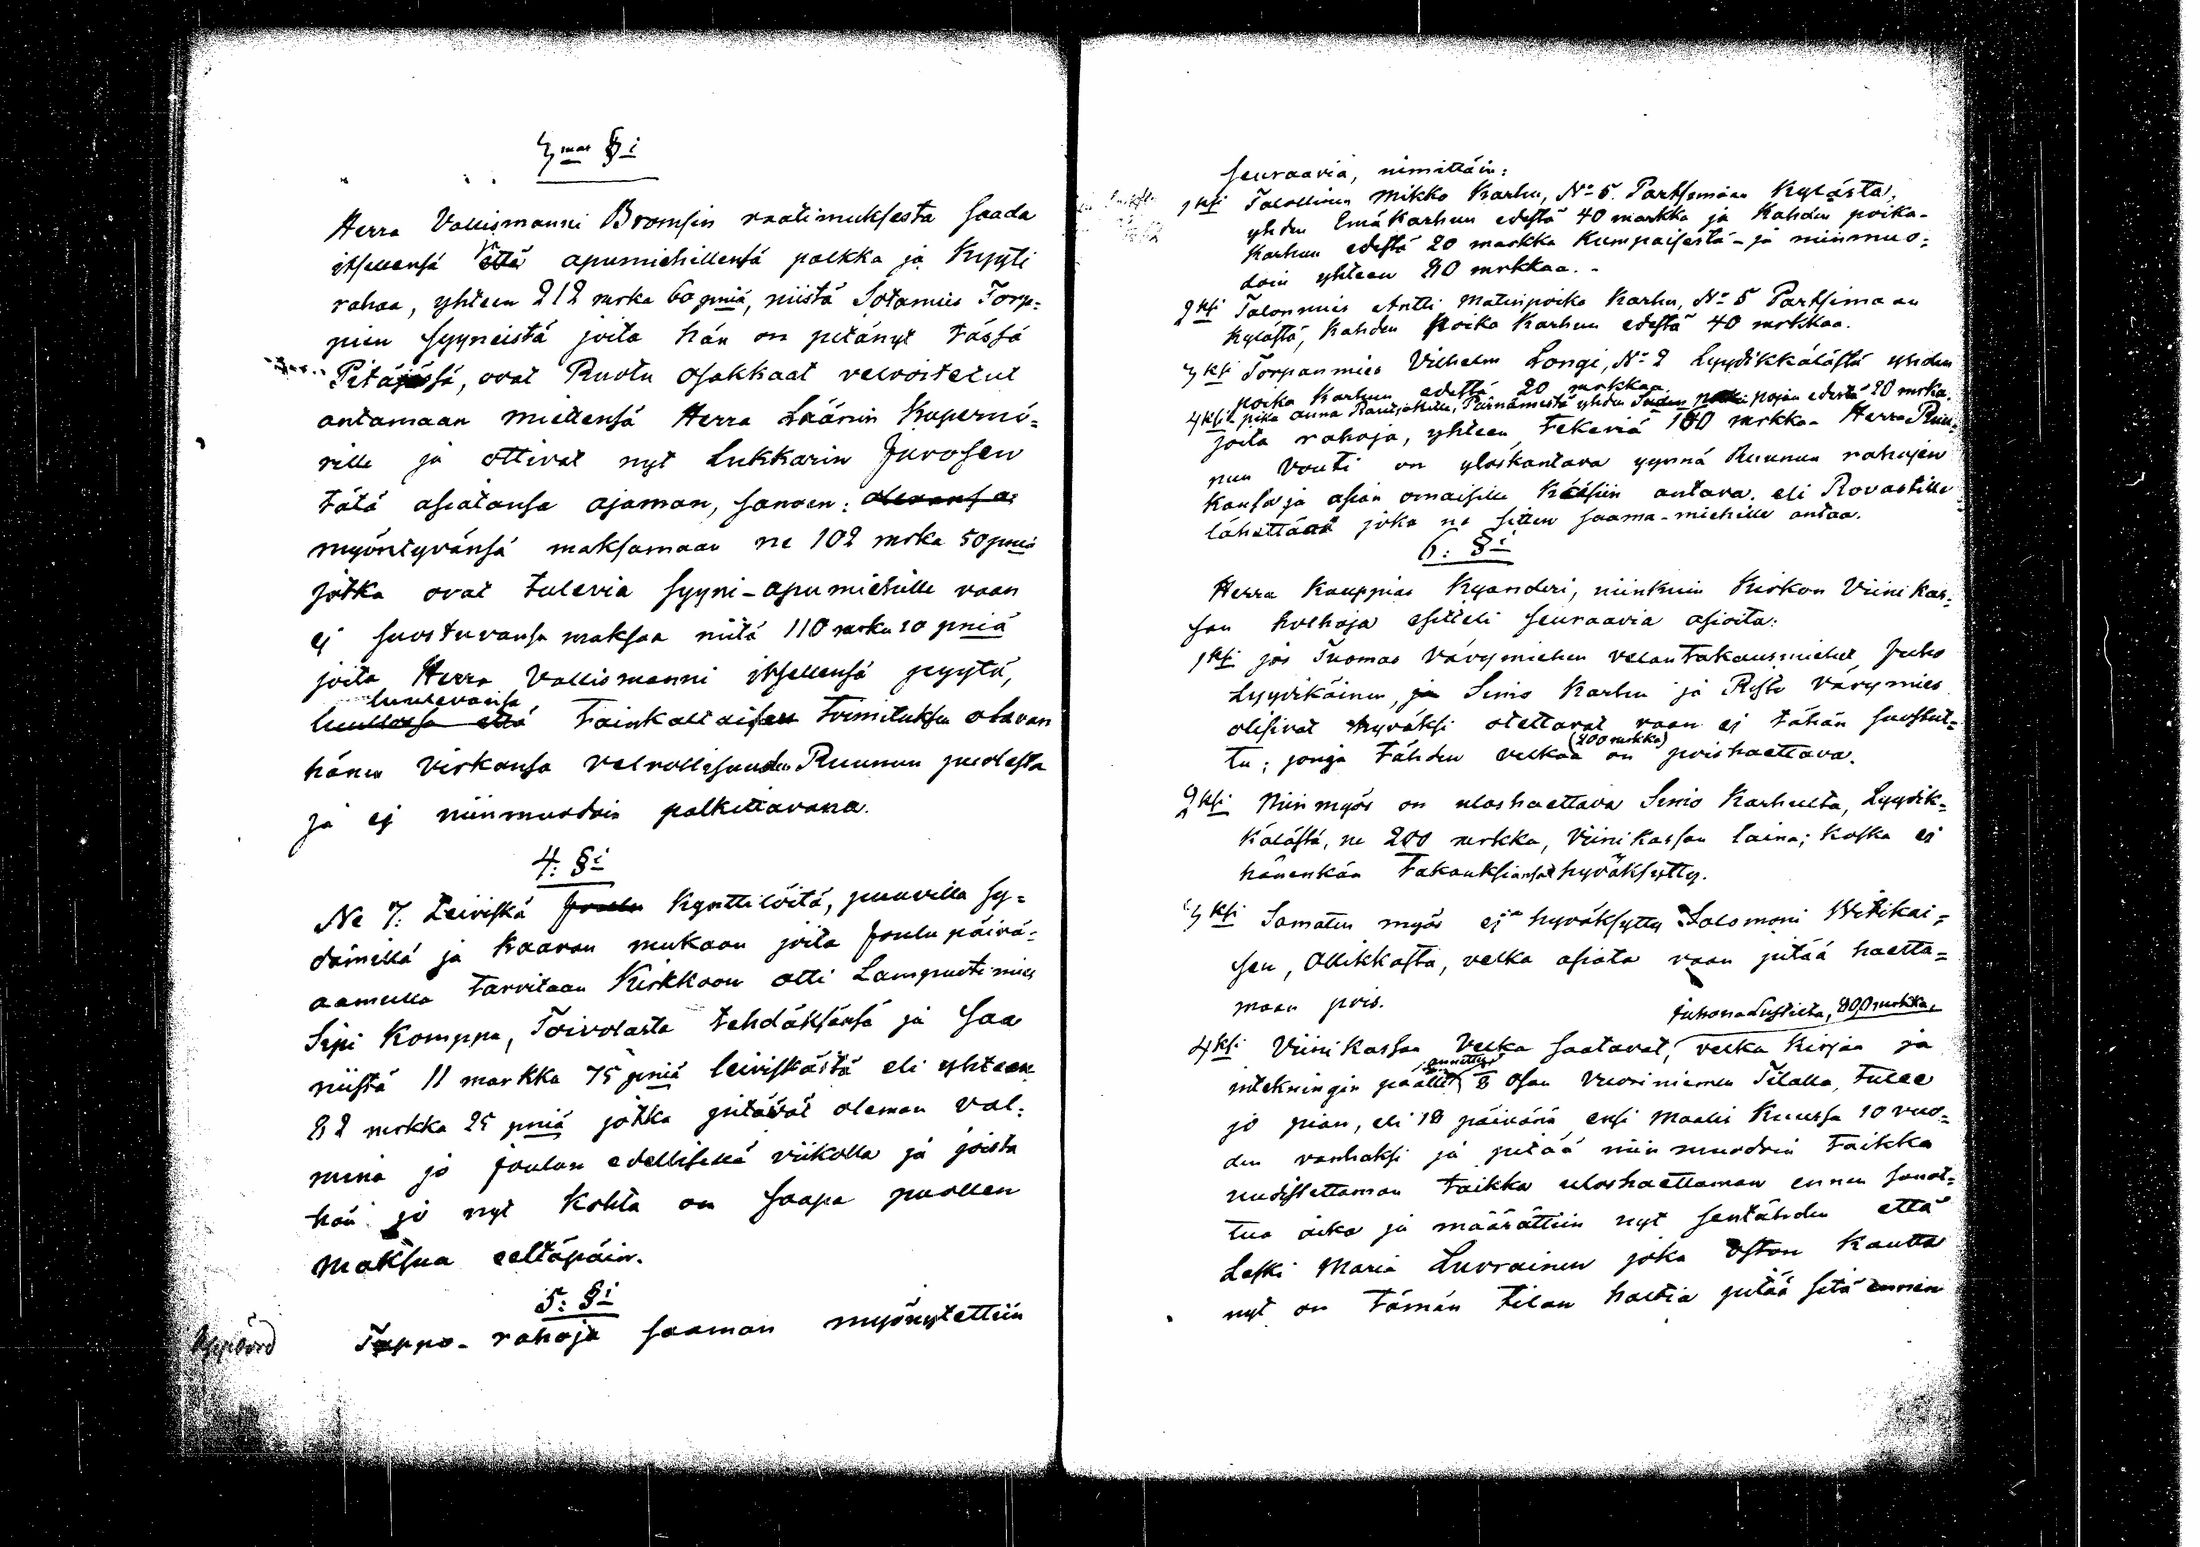 3mas §i
Herra Vallismanni Bromsin vaatimuksesta saada
itsellensä että apumiehillensä palkka ja Kyyti
rahaa, yhteen 212 mrka 60 pniä, niistä Sotamies Torp=
pien syyneistä joita hän on pitänyt tässä
Pitäjässä, ovat Ruotu osakkaat velvoitetut
antamaan mielensä Herra Läänin Kuvernö=
rille ja ottivat nyt Lukkarin Juvosen
tätä asiatansa ajaman, sanoen: olevansa
myöntyvänsä maksamaan ne 102 mrka 50 pniä
jotka ovat tulevia syyni-apumiehille vaan
ej suostuvansa maksaa niitä 110 mrka 10 pniä
joita Herra Vallismanni itsellensä pyytä,
luulevansa
luullensa että tainkaltaisen toimituksen olevan
hänen virkansa velvollisuuden Ruunun puolesta
ja ej niinmuodoin palkittavana.
4: §i
Ne 7: Leiviskä Joulu Kynttilöitä, puuvilla sy=
dämillä ja kaavan mukaan joita Joulu päivä=
aamulla tarvitaan Kirkkoon otti Lampuotimies
Sipi Komppa, Toivolasta tehdäksänsä ja saa
niistä 11 markka 75 pniä leiviskästä eli yhteen
82 mrkka 25 pniä jotka pitävät oleman val=
mina jo joulun edellisellä viikolla ja joista
hän jo nyt kohta on saapa puollen
maksua eeltäpäin.
5: §i
Tappo-rahoja saaman myönytettiin
seuraavia, nimittäin:
1ksi Talollinen Mikko Karhu, No 5. Partsimaan Kylästä,
yhden Emäkarhun edestä 40 markka ja Kahden poika-
Karhun edestä 20 markka Kumpaisestä - ja niinmuo=
doin yhteen 80 mrkkaa. -
2ksi Talonmies Antti Matinpoika Karhu, No 5 Partsimaan
Kylästä, Kahden Poika Karhun edestä 40 mrkkaa.
3ksi Torpanmies Vilhelm Longi, No 2 Lyydikkälästä yhden
poika Karhun edestä 20 mrkkaa.
4ksi piika Anna yhden Suden pojan edestä 20 mrka.
joita rahoja, yhteen tekeviä 180 mrkkaa Herra Ruu=
nun Vouti on yloskantava yynnä Ruunun rahojen
kansa ja asian omaisille käsiin antava. eli Rovastille
lähettävä joka ne sitten saama-miehille antaa.
6: §i
Herra Kauppias Kyanderi, niinkuin Kirkon Viinikas=
san holhoja esitteli seuraavia asioita:
1ksi jos Tuomas Väryimiehen velan takausmiehet, Juho
Lyydikäinen, ja Simo Karhu ja Risto Värymies
olisivat hyväksi otettavat vaan ej tähän suostut=
tu; jonga tähden velkaa (200 mrkka) on poishaettava.
2ksi Niinmyös on uloshaettava Simo Karhulta, Lyydik=
kälästä, ne 200 mrkka, Viinikassan laina; koska ej
hänenkän takauksiansa hyväksytty.
3ksi Samaten myös ej hyväksytty Salomoni Witikai=
sen, Ollikkasta, velka asiata vaan pitää haetta=
maan pois.
200 mrkka,
4ksi Viinikassan Velka saatavat, velka kirjan ja
inteckningin päälle annettu 8 osan Vuoriniemen Tilalla, tulee
jo pian, eli 18 päivänä ensi Maalis Kuussa 10 vuo=
den vanhaksi ja pitää niin muodoin taikka
uudistettaman taikka uloshaettaman ennen sanot=
tua aika ja määrättiin nyt sentähden että
Leski Maria Luvrainen joka oston kautta
nyt on tämän tilan haltia pitää sitä ennen